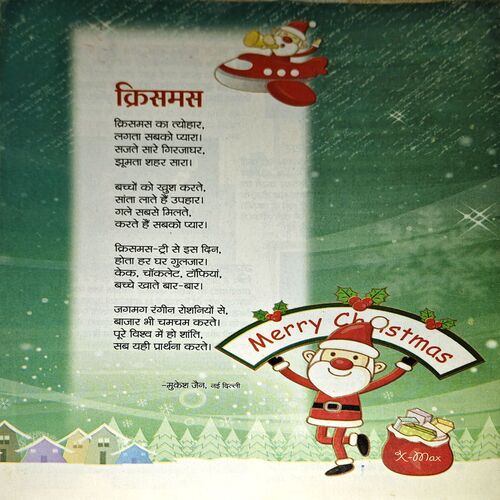 क्रिसमस
क्रिसमस का त्योहार,
लगता सबको प्यारा।
सजते सारे गिरजाघर,
झूमता शहर सारा।
बच्चों को खुश करते,
सांता लाते हैं उपहार।
गले सबसे मिलते,
करते हैं सबको प्यार।
क्रिसमस-ट्री से इस दिन,
होता हर घर गुलजार।
केक, चॉकलेट, टॉफियां,
बच्चे खाते बार-बार।
जगमग रंगीन रोशनियों से,
बाजार भी चमचम करते।
पूरे विश्व में हो शांति,
सब यही प्रार्थना करते।
-मुकेश जैन, नई दिल्ली
Merry Christmas
X-Max